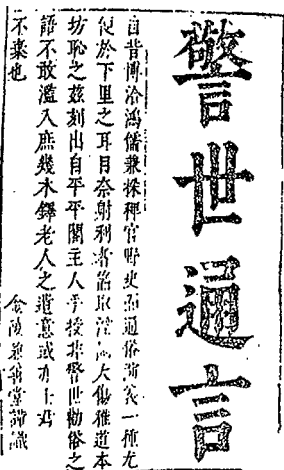 警世通言
自昔博洽鴻儒兼採稗官野史而通俗演義一種尤
便於下里之耳目奈射利者取淫詞大傷雅道本
坊恥之茲刻出自平平閣主人手授非警世勸俗之
語不敢濫入庶幾木鐸老人之遺意或亦士君
不棄也
金陵兼善堂謹識